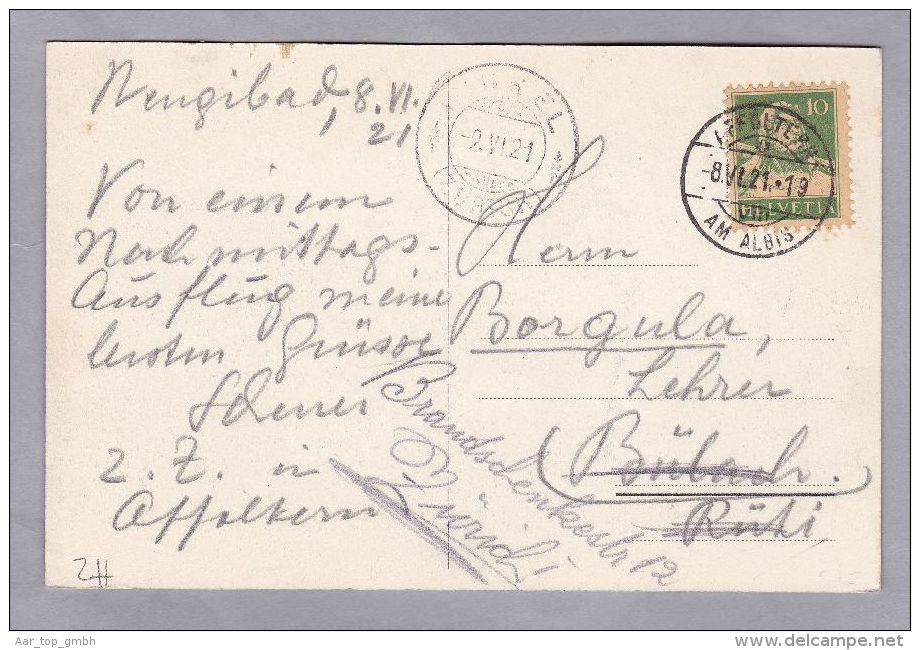 Wengibad, 8. VI. 21
Von einem
Nachmittags-
Ausflug meine
besten Grüsse
z. Z. in
Affoltern
Herrn
Borgula,
Lehrer
(Bübach.)
Rüti
Brandschenkestr 12
Zürich 1
-9.VI.21
10
HELVETIA
-8.VI.21.-19
AM ALBIS
2H
Aar_top_gmbh
www.delcampe.net